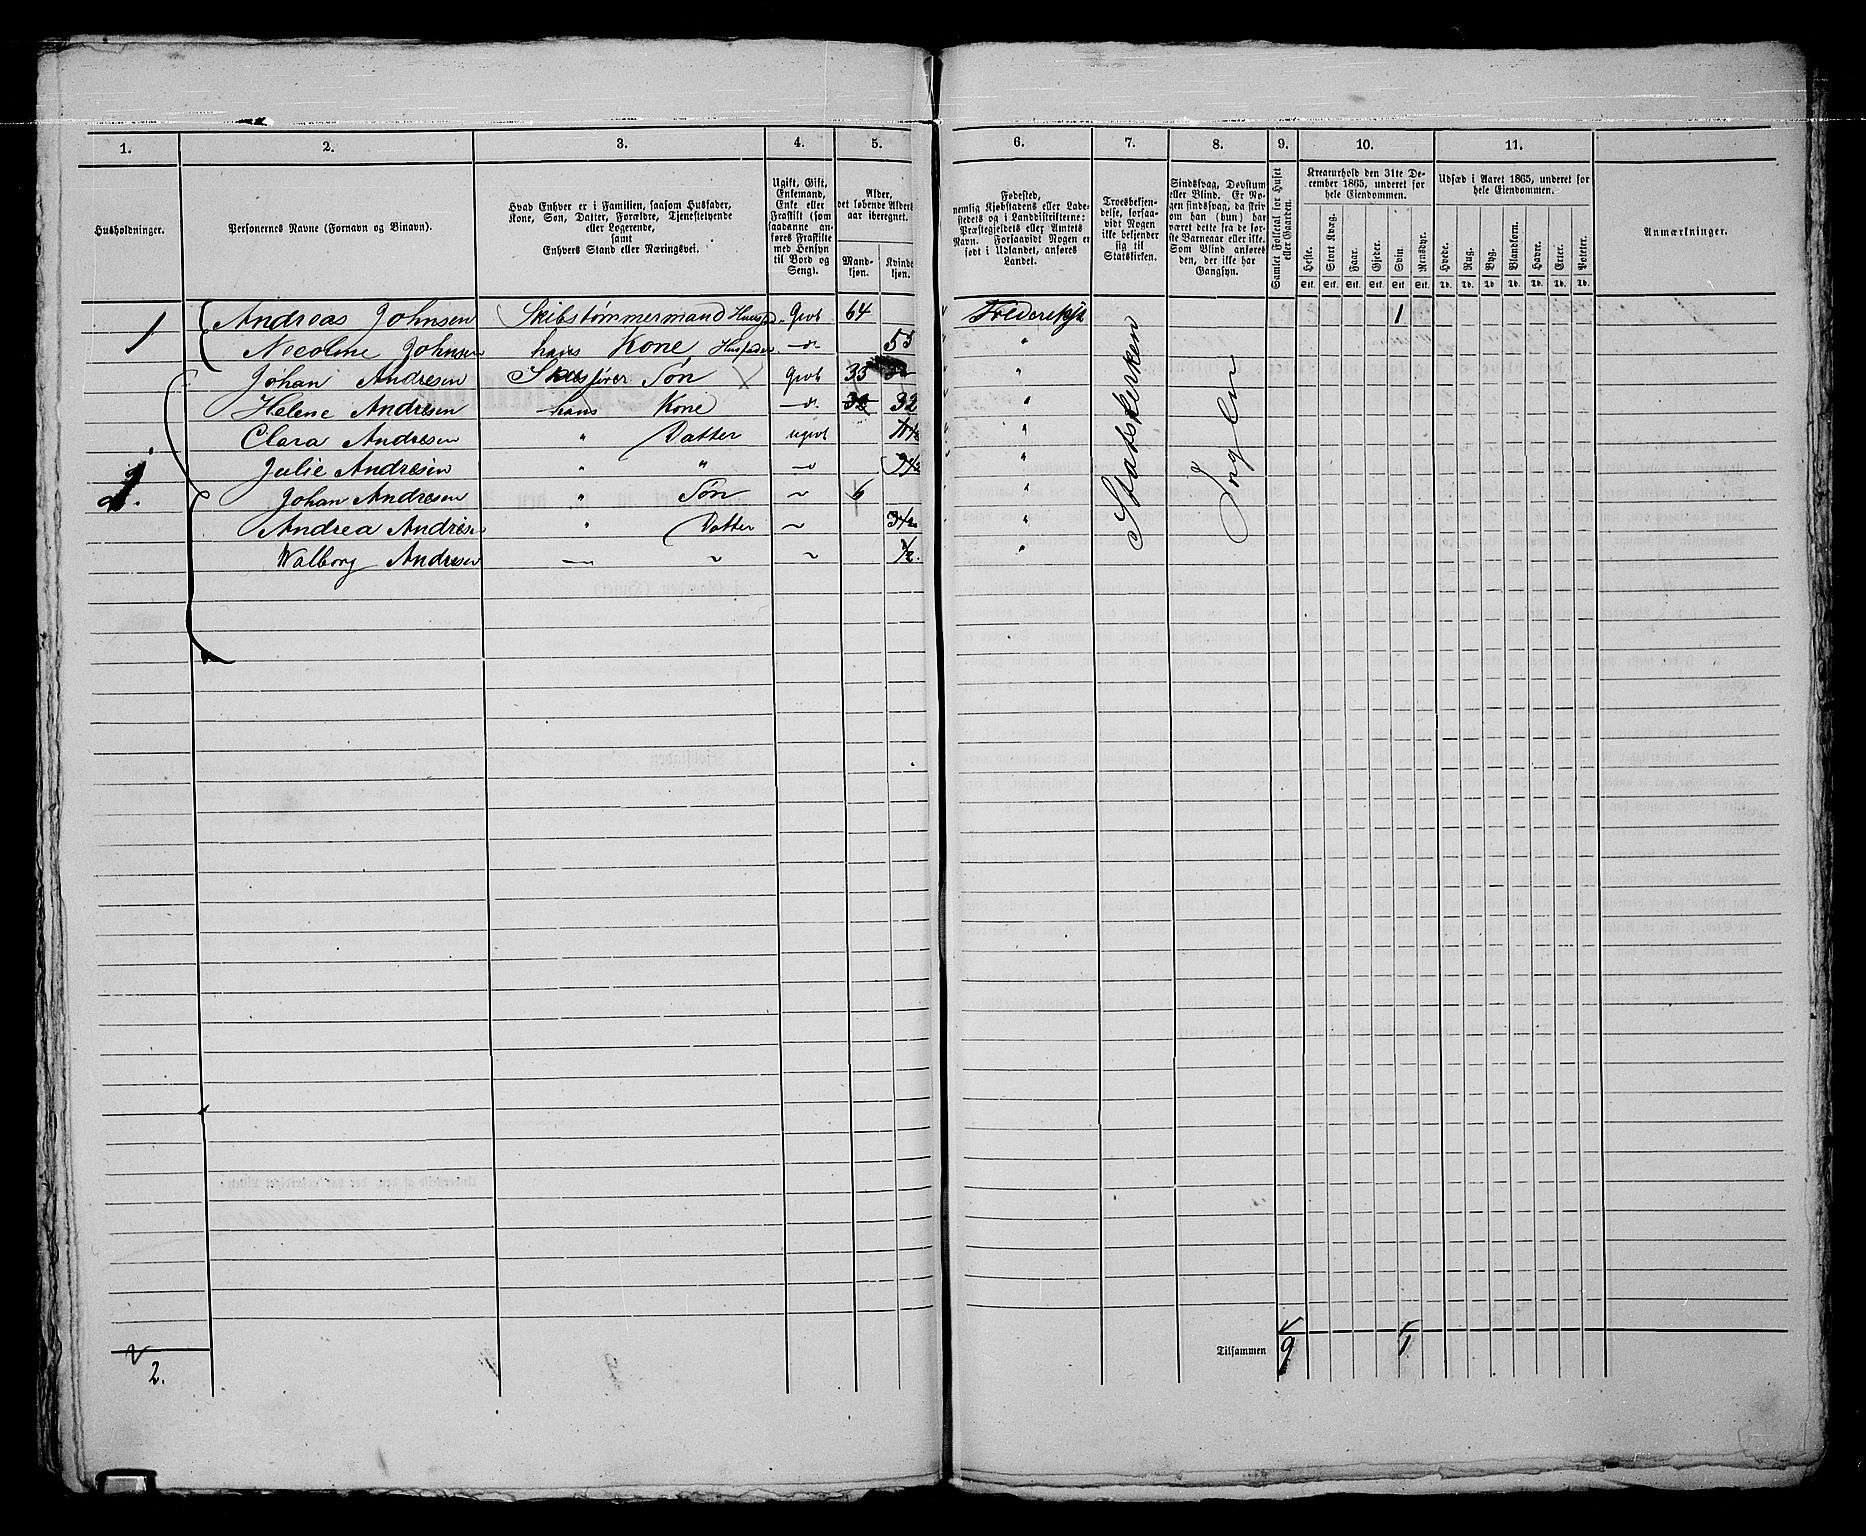 1.
2.
3.
4.
5.
6.
7.
8.
9.
10.
11.
Husholdninger.
Personernes Navne (Fornavn og Binavn).
Hvad Enhver er i Familien, saasom Husfader,
Kone, Søn, Datter, Forældre, Tjenestetyende
eller Logerende,
samt
Enhvers Stand eller Næringsvei.
Ugift, Gift,
Enkemand,
Enke eller
Fraskilt (som
saadanne an-
føres Fraskilte
med Hensyn
til Bord og
Seng).
Alder,
det løbende Alders-
aar iberegnet.
Mand-
kjøn.
Kvinde-
kjøn.
Fødested,
nemlig Kjøbstadens eller Lade-
stedets og i Landdistrikterne:
Præstegjeldets eller Amtets
Navn. Forsaavidt Nogen er
født i Udlandet, anføres
Landet.
Troesbekjen-
delse, forsaa-
vidt Nogen
ikke bekjender
sig til
Statskirken.
Sindssvag, Døvstum
eller Blind. Er No-
gen sindssvag, da skriv
om han (hun) har
været dette fra de før-
ste Barneaar eller ikke.
Som Blind anføres
den, der ikke har
Gangsyn.
Samlet Folketal for Huset
eller Gaarden.
Kreaturhold den 31te De-
cember 1865, underet for
hele Eiendommen.
Heste.
Stort Kvæg.
Faar.
Gjeder.
Svin.
Rensdyr.
Stk. Stk. Stk. Stk. Stk. Stk.
Udsæd i Aaret 1865, underet for
hele Eiendommen.
Hvede.
Rug.
Byg.
Blandkorn.
Havre.
Erter.
Poteter.
Td. Td. Td. Td. Td. Td. Td.
Anmærkninger.
1 Andreas Johnsen Skibstømmermand Givt 64 Frederikst 1
Nicoline Johnsen hans Kone Husfader 53 "
Johan Andresen Søn Givt 33 "
2. Helene Andresen hans Kone 32 32 "
Clara Andresen " Datter ugivt "
Julie Andresen " " "
Johan Andresen " Søn 6 "
Andrea Andresen " Datter "
Walborg Andresen — " 1/2. "
Statskirken
Ingen
Tilsammen 9 1
2.